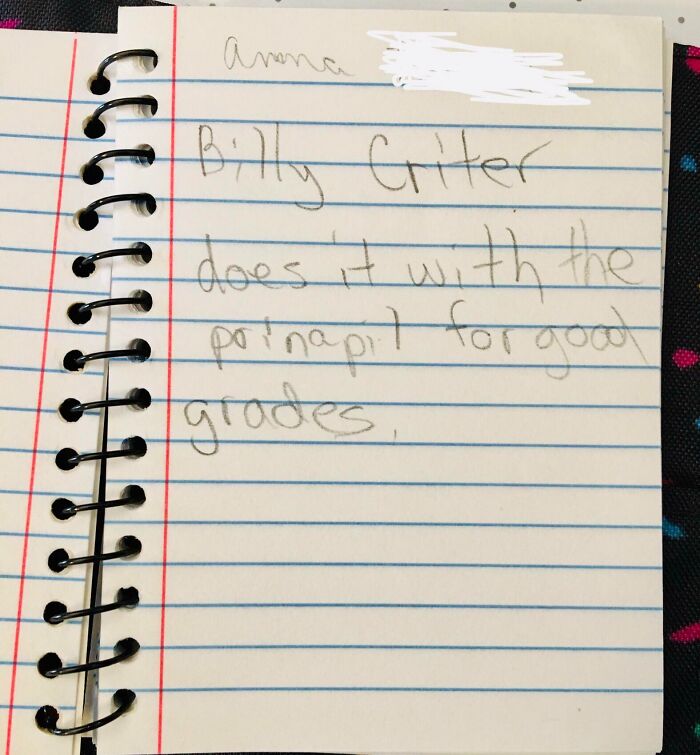 anna
Billy Criter
does it with the
prinapil for good
grades.